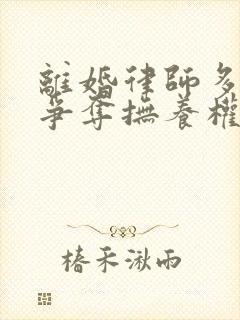 離婚律師多
爭奪撫養權
椿禾湫雨